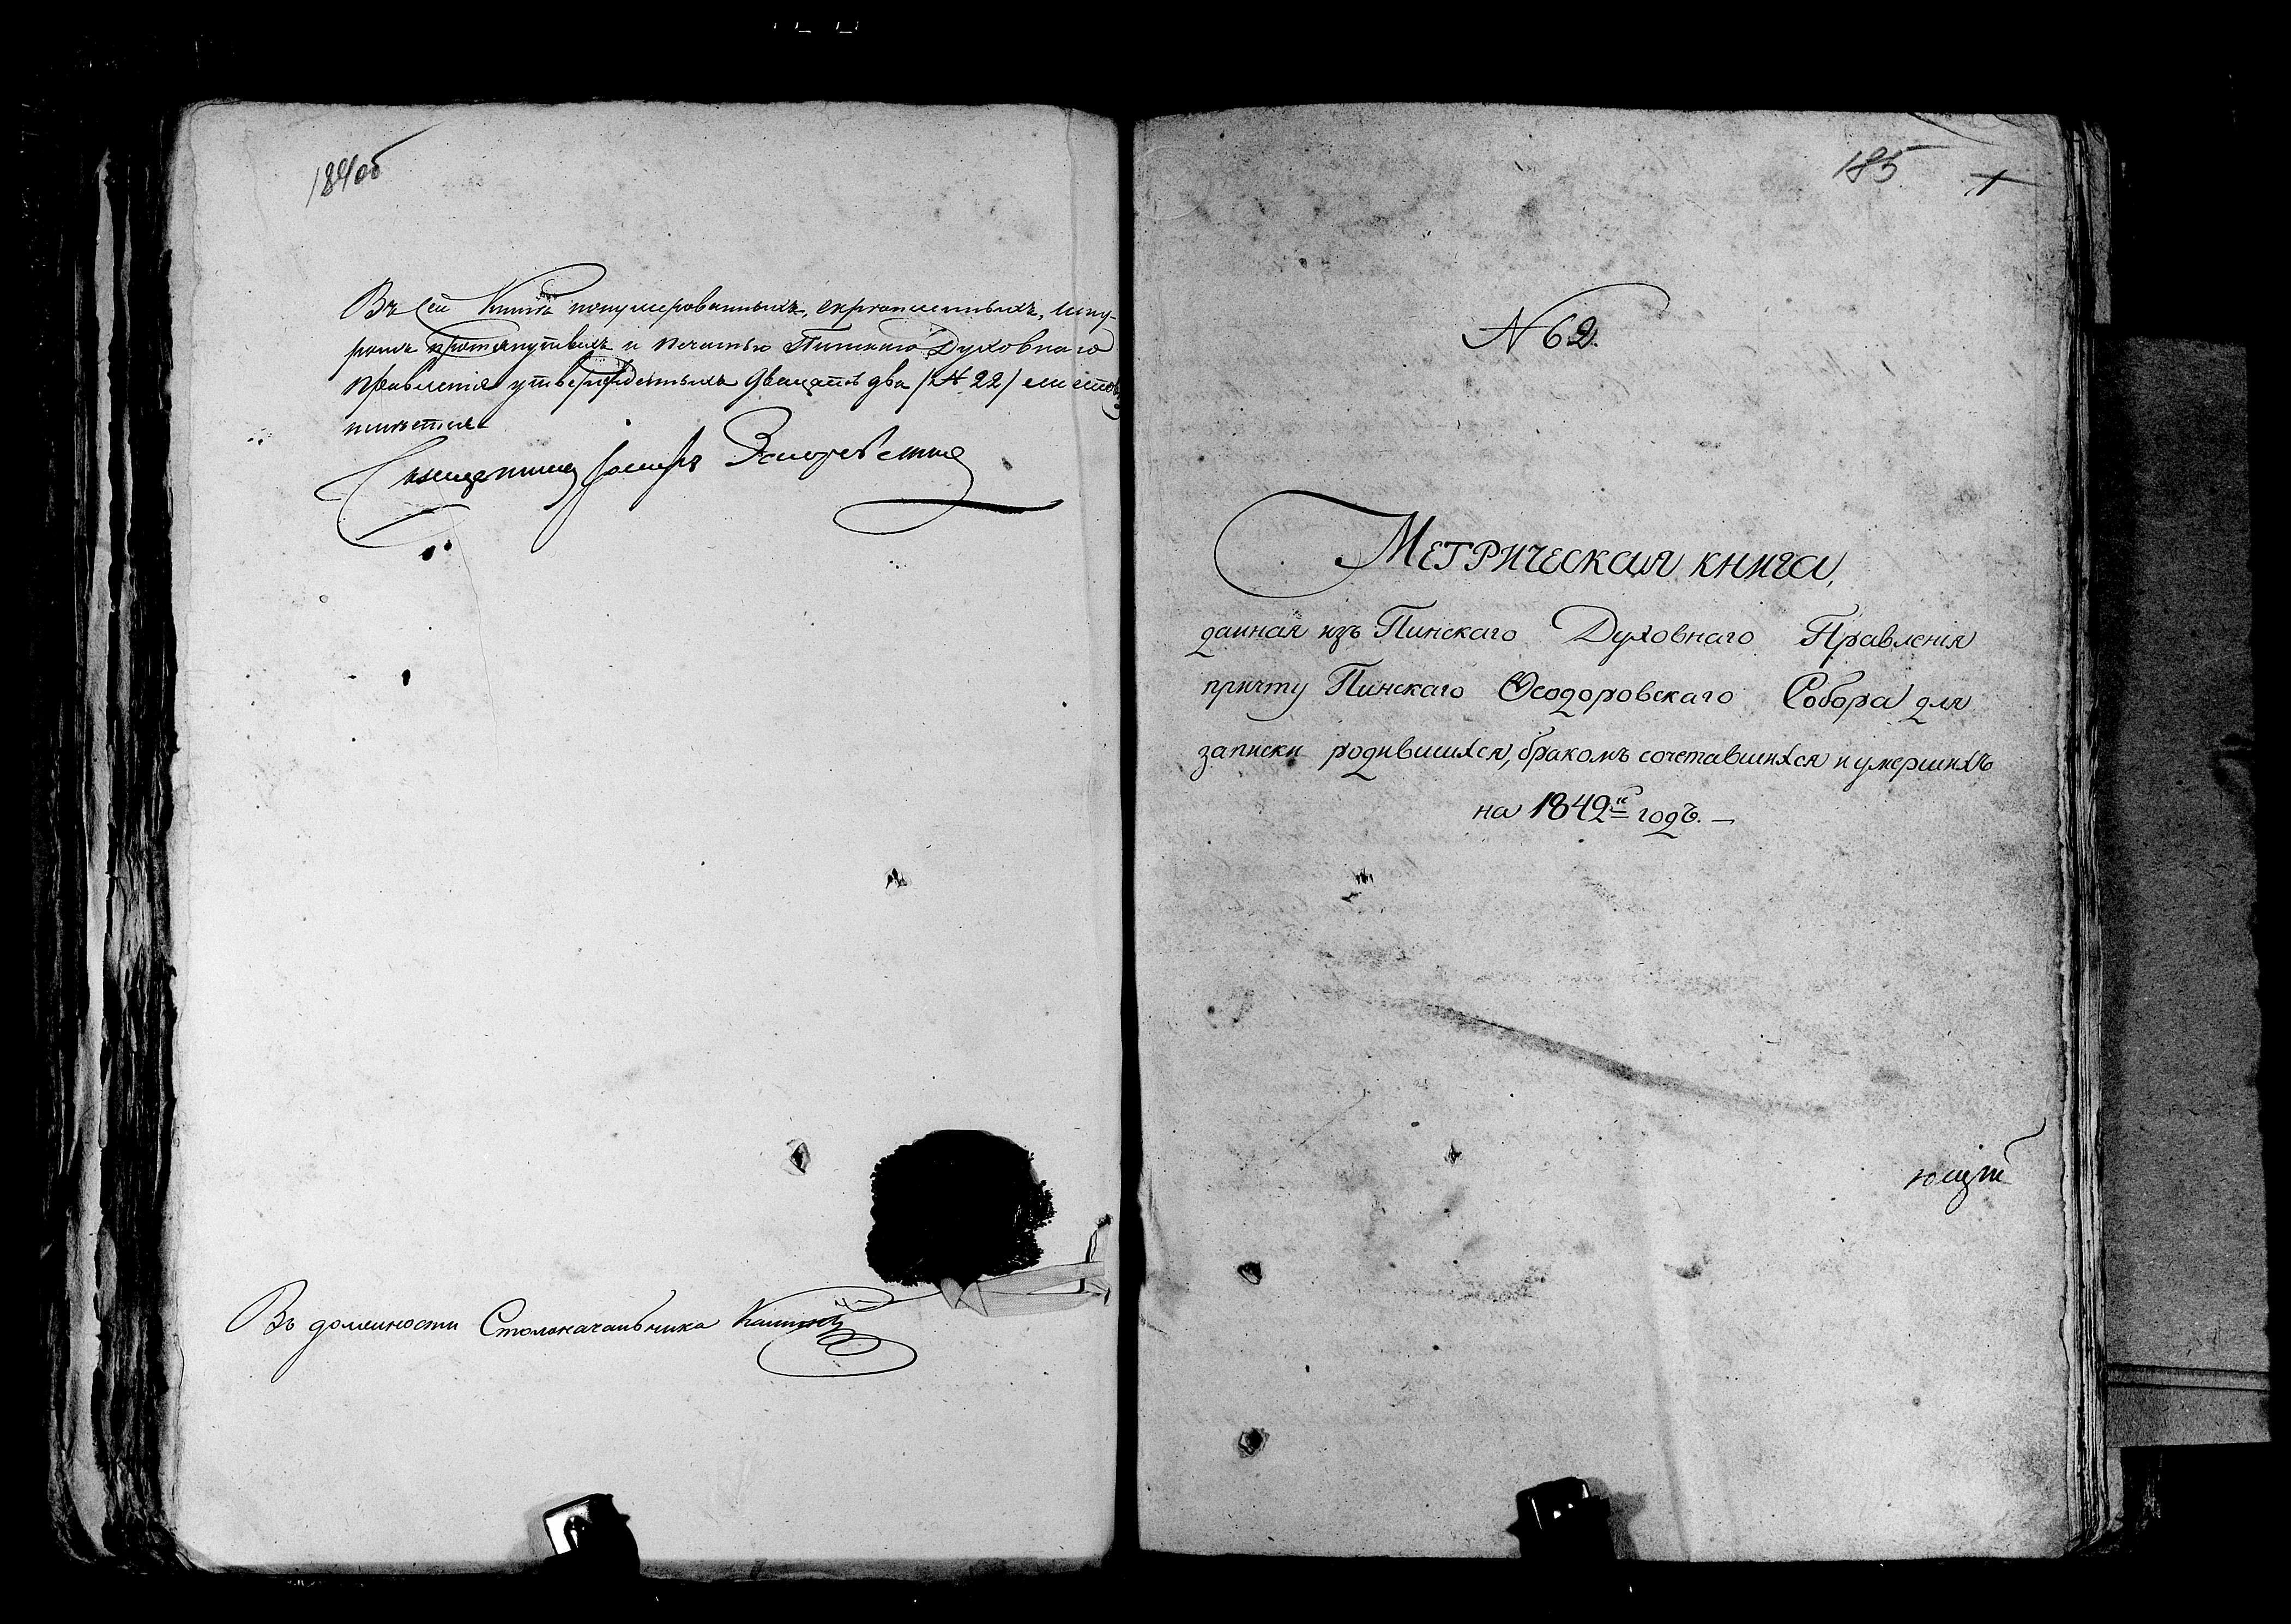 184об
Въ сей Книгѣ нонумерованныхъ, скрѣпленныхъ, шну-
ромъ протянутыхъ и печатью Пинскаго Духовнаго
Правленія утвержденныхъ двадцать два (№ 22) листовъ
имѣется
Іосифъ
Въ должности Столоначальника
185
№ 62.
Метрическая книга,
данная изъ Пинскаго Духовнаго Правленія
причту Пинскаго Ѳеодоровскаго Собора для
записки родившихся, бракомъ сочетавшихся и умершихъ
на 1842й годъ. —